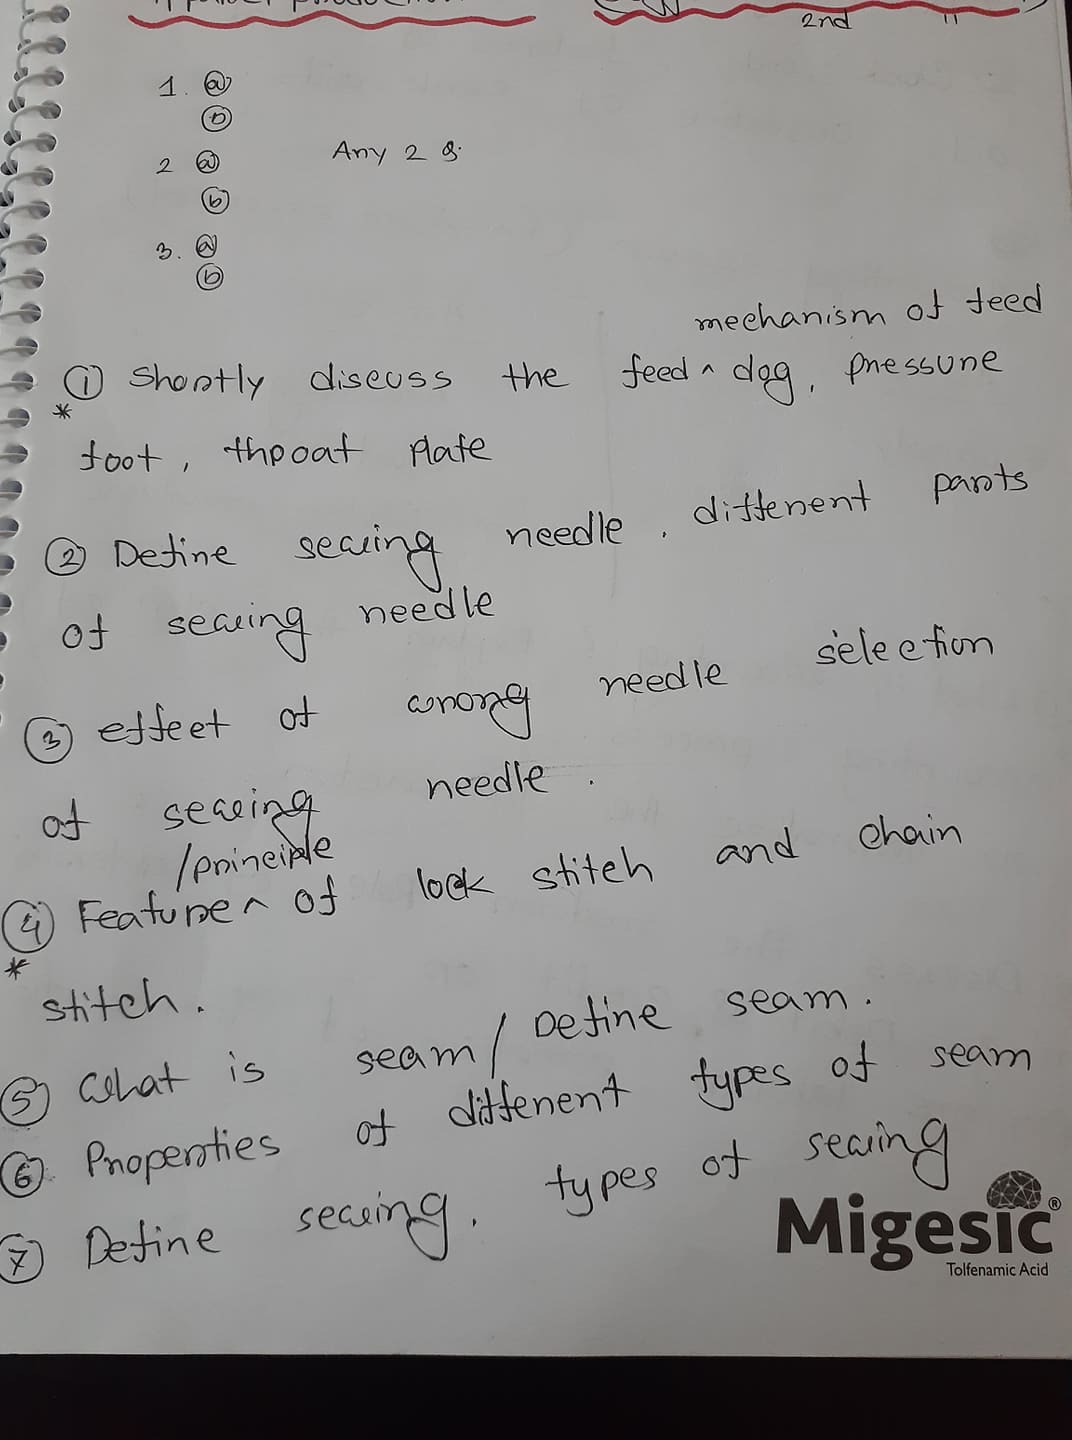 2nd "
1. ⓐ
ⓑ
2 ⓐ
ⓑ
Any 2 Q.
3. ⓐ
ⓑ
mechanism of feed
① Shortly discuss the feed ^ dog, pressure
*
foot, throat plate
② Define sewing needle, different parts
of sewing needle
③ effect of wrong needle selection
of sewing needle.
/principle
④ Feature ^ of lock stitch and chain
*
stitch.
⑤ What is seam/ Define seam.
⑥ Properties of different types of seam
⑦ Define sewing, types of sewing
Migesic®
Tolfenamic Acid